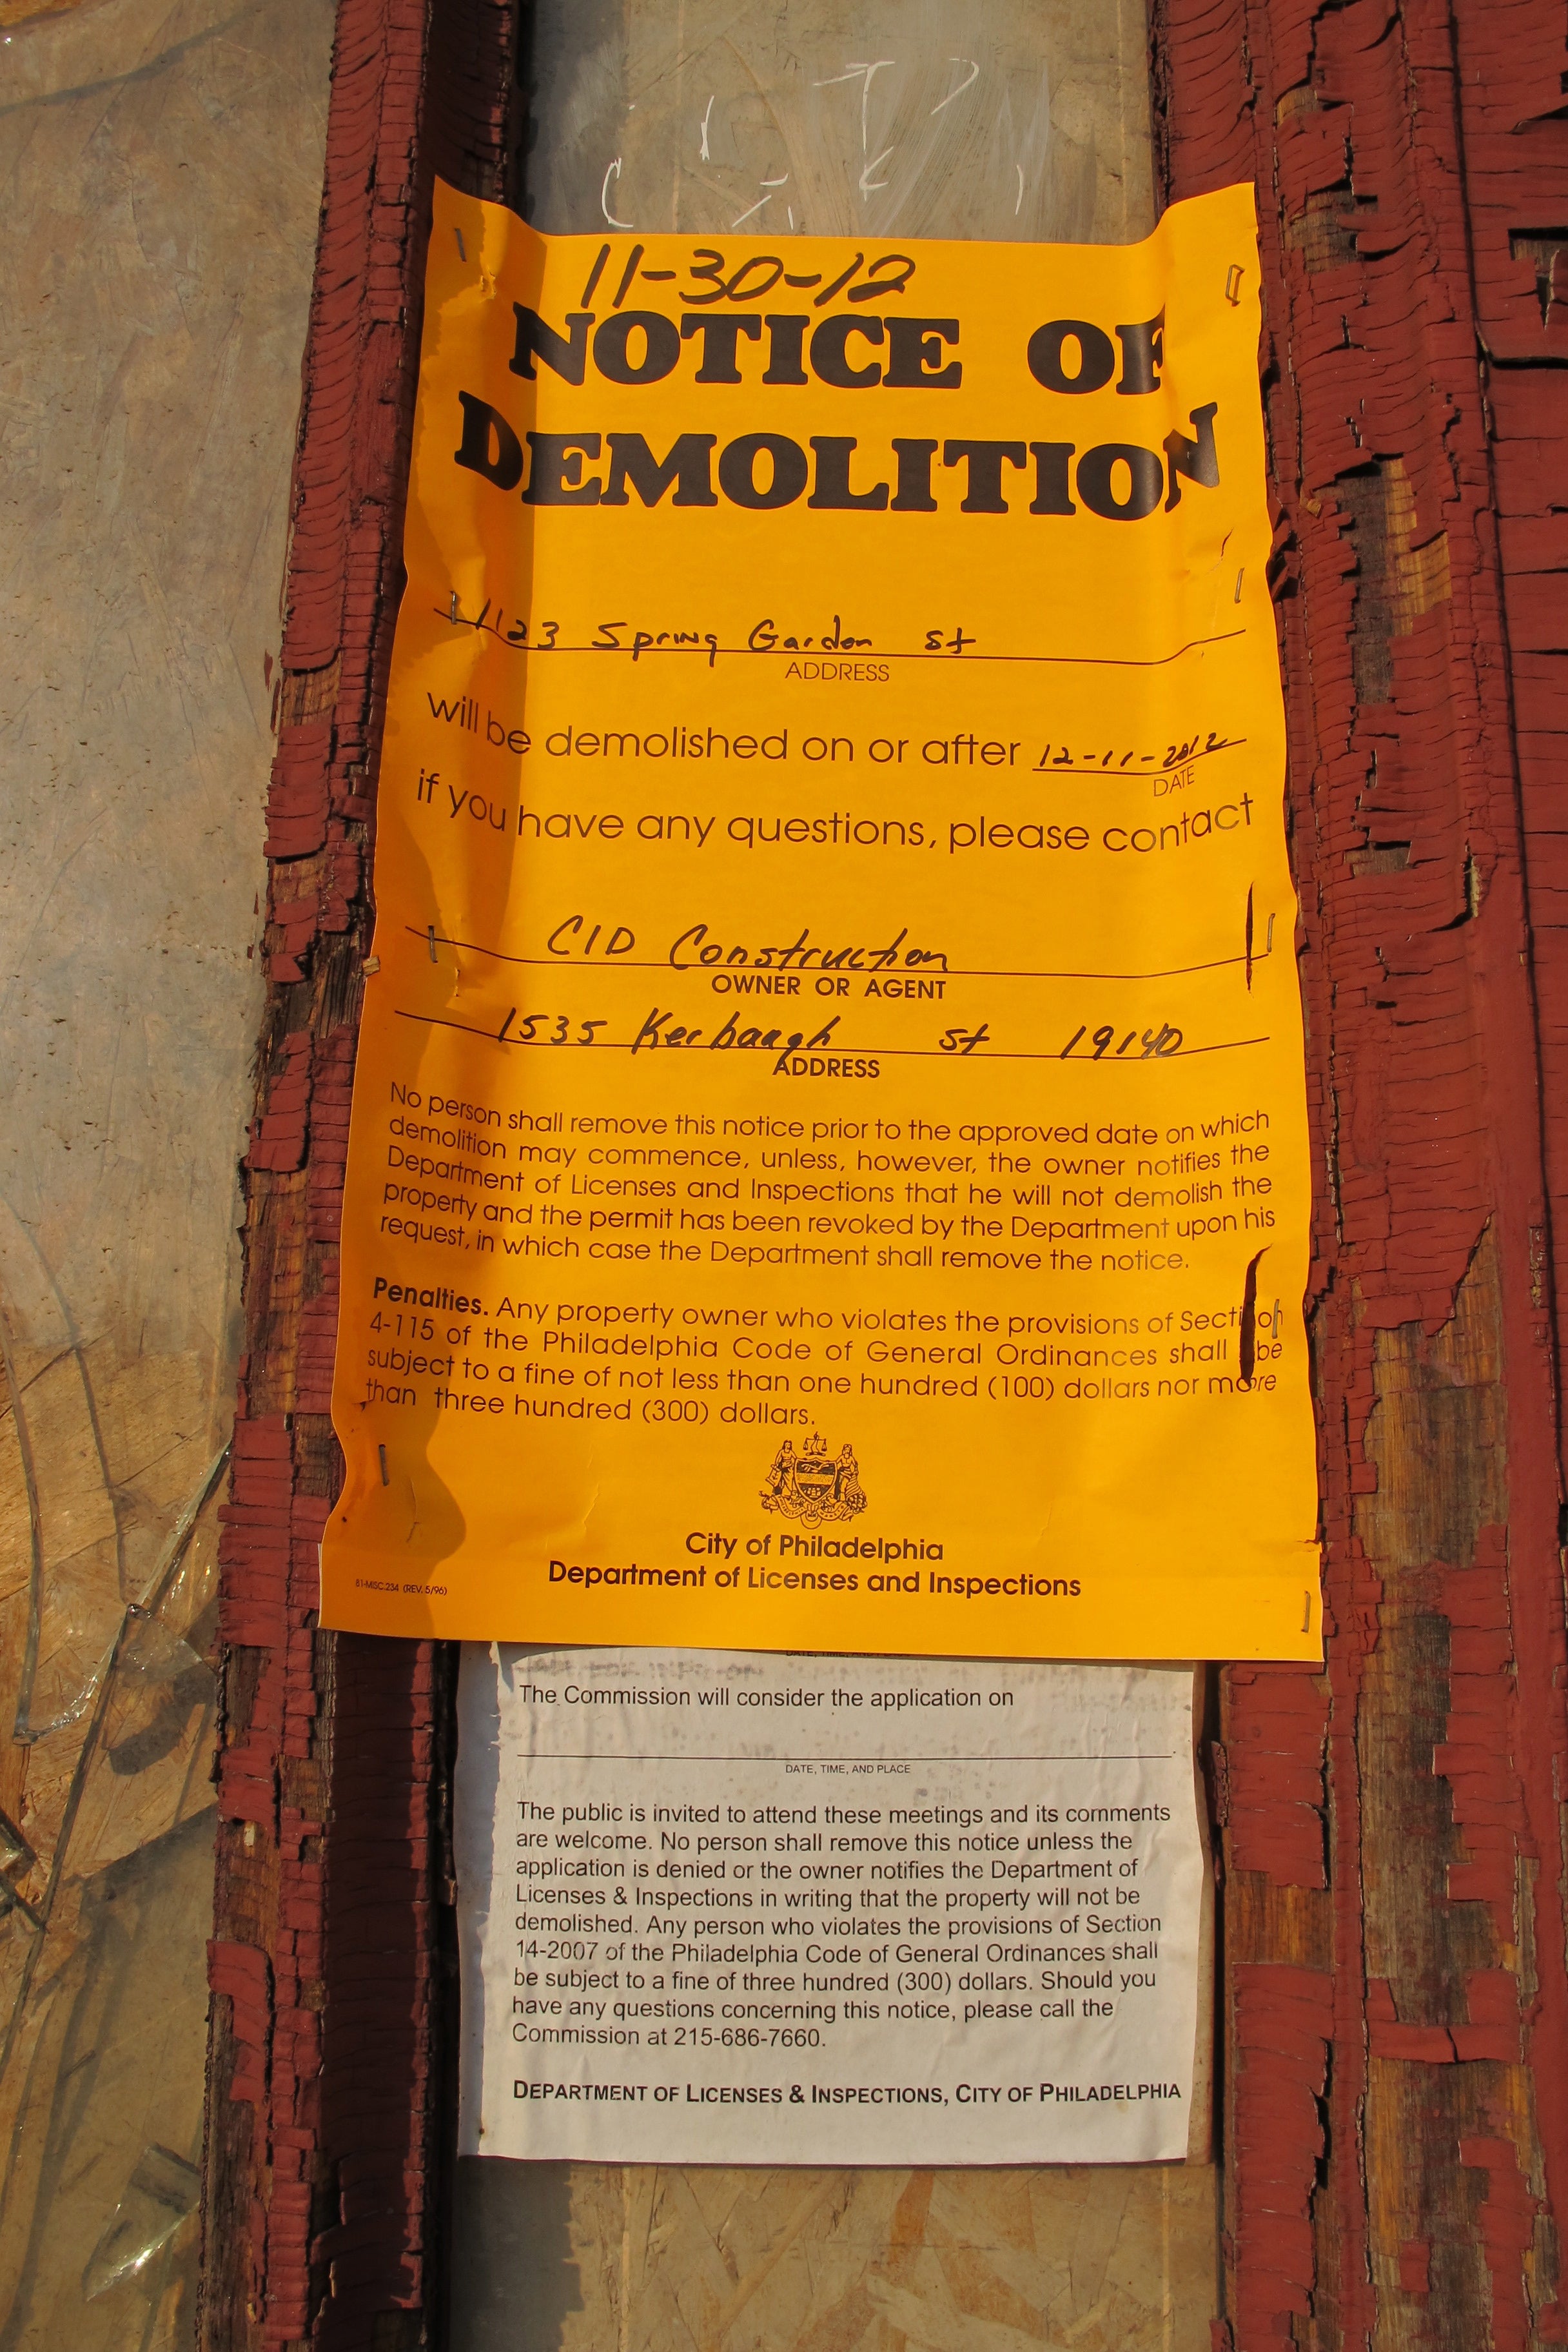 11-30-12
NOTICE OF
DEMOLITION
1123 Spring Garden St
ADDRESS
will be demolished on or after 12-11-2012
DATE
if you have any questions, please contact
CID Construction
OWNER OR AGENT
1535 Kerbaugh St 19140
ADDRESS
No person shall remove this notice prior to the approved date on which
demolition may commence, unless, however, the owner notifies the
Department of Licenses and Inspections that he will not demolish the
property and the permit has been revoked by the Department upon his
request, in which case the Department shall remove the notice.
Penalties. Any property owner who violates the provisions of Section
4-115 of the Philadelphia Code of General Ordinances shall be
subject to a fine of not less than one hundred (100) dollars nor more
than three hundred (300) dollars.
City of Philadelphia
Department of Licenses and Inspections
81-MISC.234 (REV. 5/96)
The Commission will consider the application on
DATE, TIME, AND PLACE
The public is invited to attend these meetings and its comments
are welcome. No person shall remove this notice unless the
application is denied or the owner notifies the Department of
Licenses & Inspections in writing that the property will not be
demolished. Any person who violates the provisions of Section
14-2007 of the Philadelphia Code of General Ordinances shall
be subject to a fine of three hundred (300) dollars. Should you
have any questions concerning this notice, please call the
Commission at 215-686-7660.
DEPARTMENT OF LICENSES & INSPECTIONS, CITY OF PHILADELPHIA